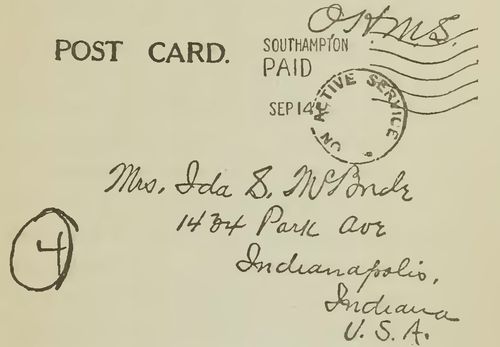 O.H.M.S.
POST CARD.
SOUTHAMPTON
PAID
SEP 14
ON ACTIVE SERVICE
Mrs. Ida S. McBride
1434 Park Ave
Indianapolis,
Indiana
U.S.A.
4